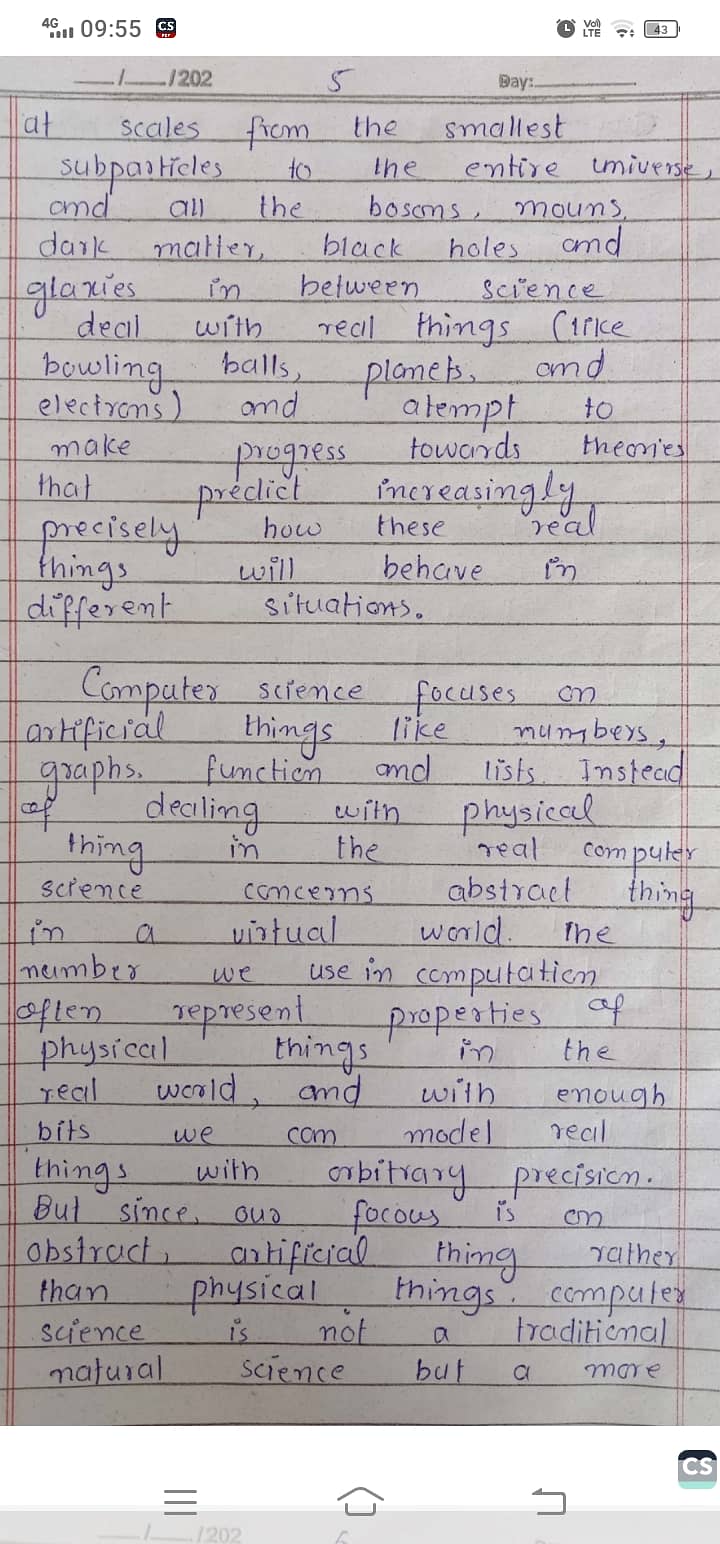 4G 09:55 CS PDF Vo)) LTE 43
__/__/202 5 Day:
at scales from the smallest
subparticles to the entire universe,
and all the bosons, mouns,
dark matter, black holes and
glaxies in between science
deal with real things (like
bowling balls, planets, and
electrons) and atempt to
make progress towards theories
that predict increasingly
precisely how these real
things will behave in
different situations.
Computer science focuses on
artificial things like numbers,
graphs. function and lists. Instead
of dealing with physical
thing in the real computer
science concerns abstract thing
in a virtual world. The
number we use in computation
often represent properties of
physical things in the
real world, and with enough
bits we can model real
things with orbitrary precision.
But since, our focous is on
obstract, artificial thing rather
than physical things. computer
science is not a traditional
natural science but a more
CS
__/__/202 6